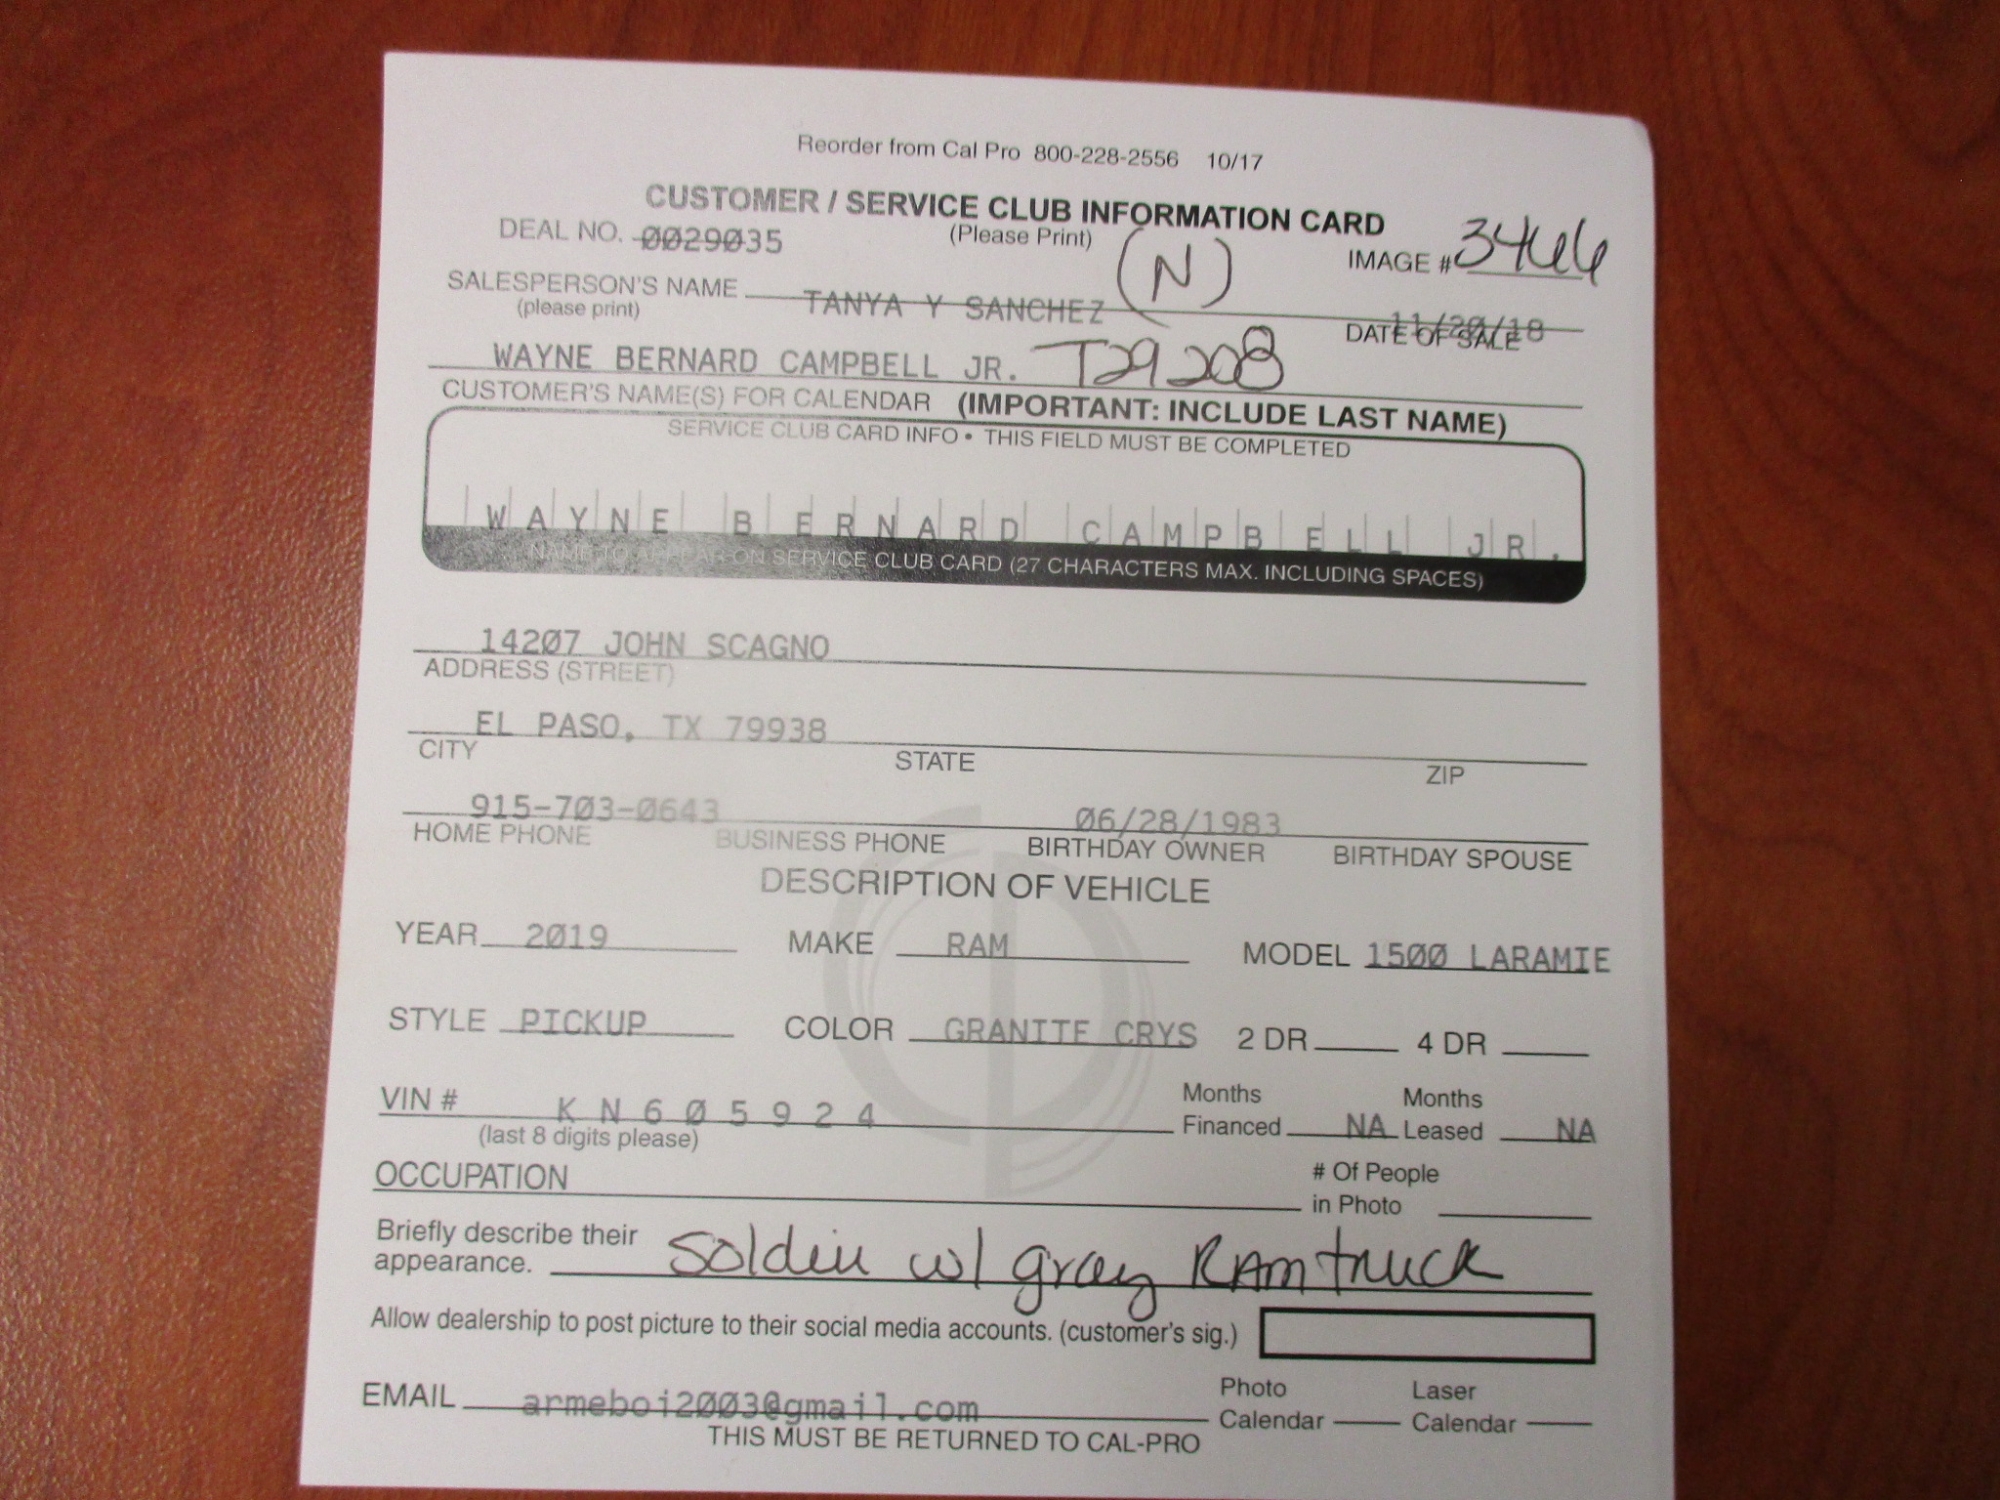 Reorder from Cal Pro 800-228-2556 10/17
CUSTOMER / SERVICE CLUB INFORMATION CARD
DEAL NO. 0029035 (Please Print) (N) IMAGE # 3466
SALESPERSON'S NAME TANYA Y SANCHEZ
(please print) DATE OF SALE 11/20/18
WAYNE BERNARD CAMPBELL JR. T29208
CUSTOMER'S NAME(S) FOR CALENDAR (IMPORTANT: INCLUDE LAST NAME)
SERVICE CLUB CARD INFO • THIS FIELD MUST BE COMPLETED
WAYNE BERNARD CAMPBELL JR.
NAME TO APPEAR ON SERVICE CLUB CARD (27 CHARACTERS MAX. INCLUDING SPACES)
14207 JOHN SCAGNO
ADDRESS (STREET)
EL PASO, TX 79938
CITY STATE ZIP
915-703-0643 06/28/1983
HOME PHONE BUSINESS PHONE BIRTHDAY OWNER BIRTHDAY SPOUSE
DESCRIPTION OF VEHICLE
YEAR 2019 MAKE RAM MODEL 1500 LARAMIE
STYLE PICKUP COLOR GRANITE CRYS 2 DR 4 DR
VIN # K N 6 0 5 9 2 4 Months Financed NA Months Leased NA
(last 8 digits please)
OCCUPATION # Of People in Photo
Briefly describe their appearance. Soldier w/ gray RAM truck
Allow dealership to post picture to their social media accounts. (customer's sig.)
EMAIL armeboi2003@gmail.com Photo Calendar Laser Calendar
THIS MUST BE RETURNED TO CAL-PRO